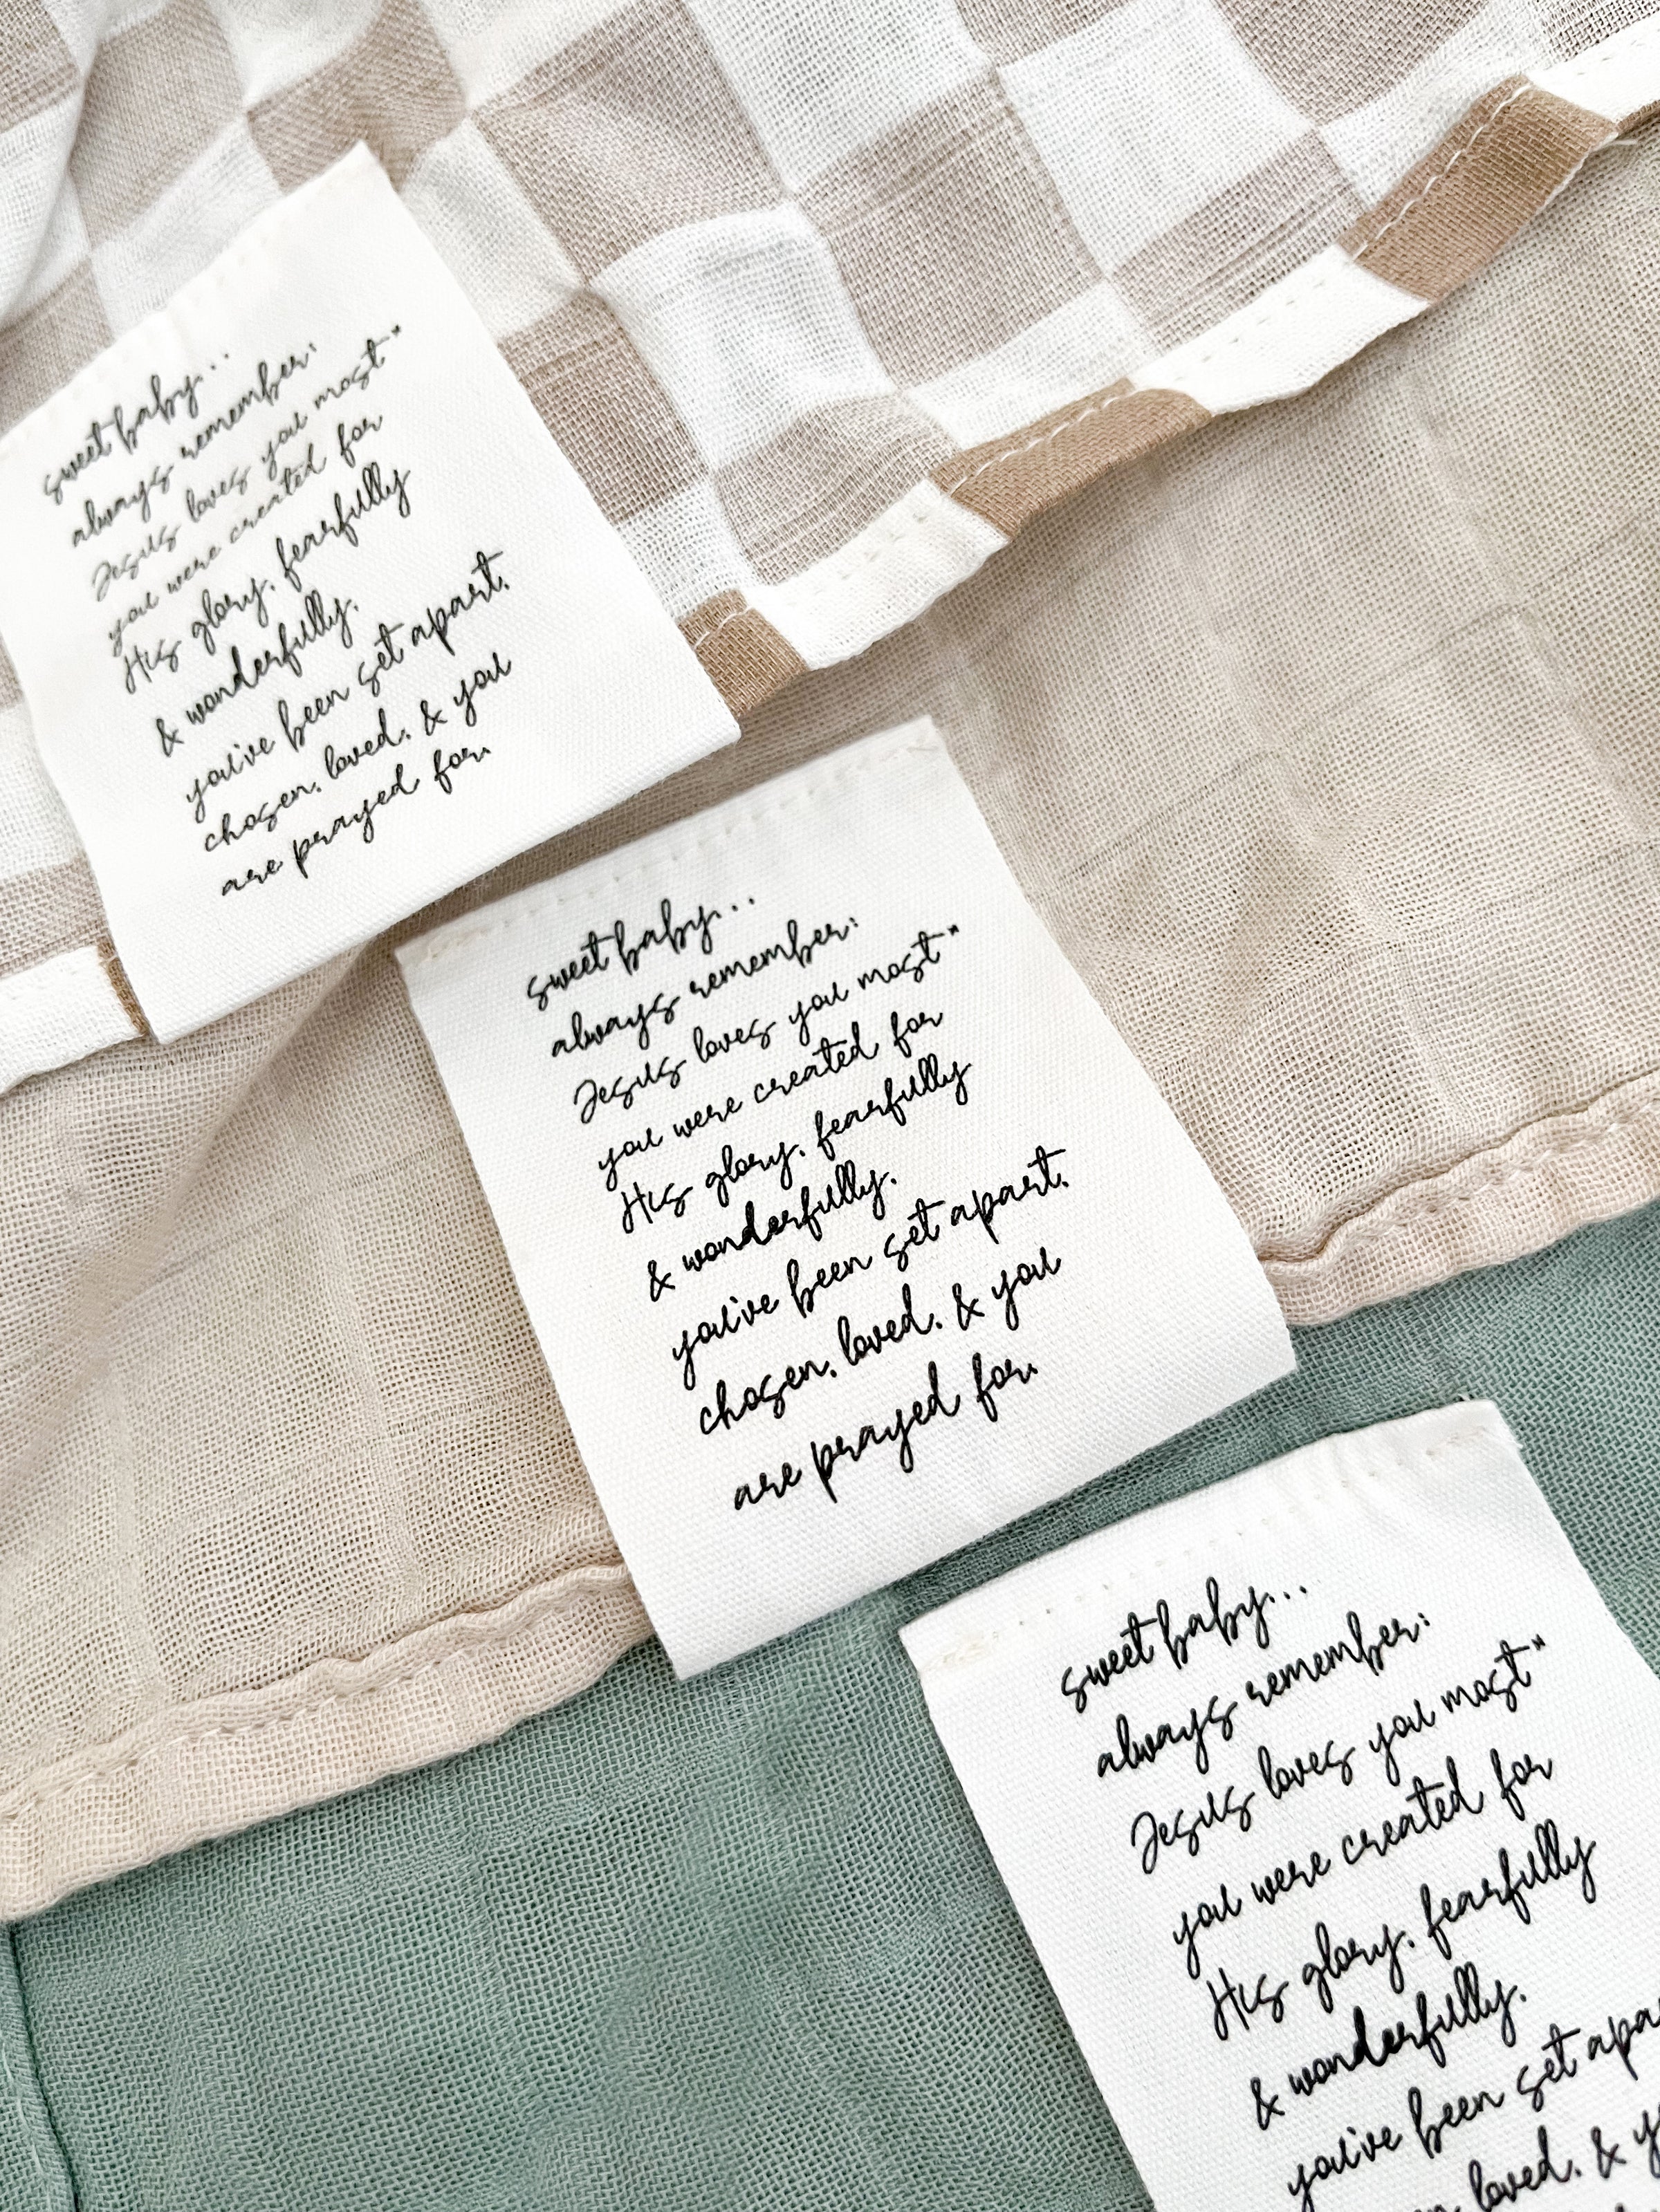 sweet baby...
always remember:
Jesus loves you most*
you were created for
His glory. fearfully
& wonderfully.
you've been set apart.
chosen. loved. & you
are prayed for.
sweet baby...
always remember:
Jesus loves you most*
you were created for
His glory. fearfully
& wonderfully.
you've been set apart.
chosen. loved. & you
are prayed for.
sweet baby...
always remember:
Jesus loves you most*
you were created for
His glory. fearfully
& wonderfully.
you've been set
loved. &